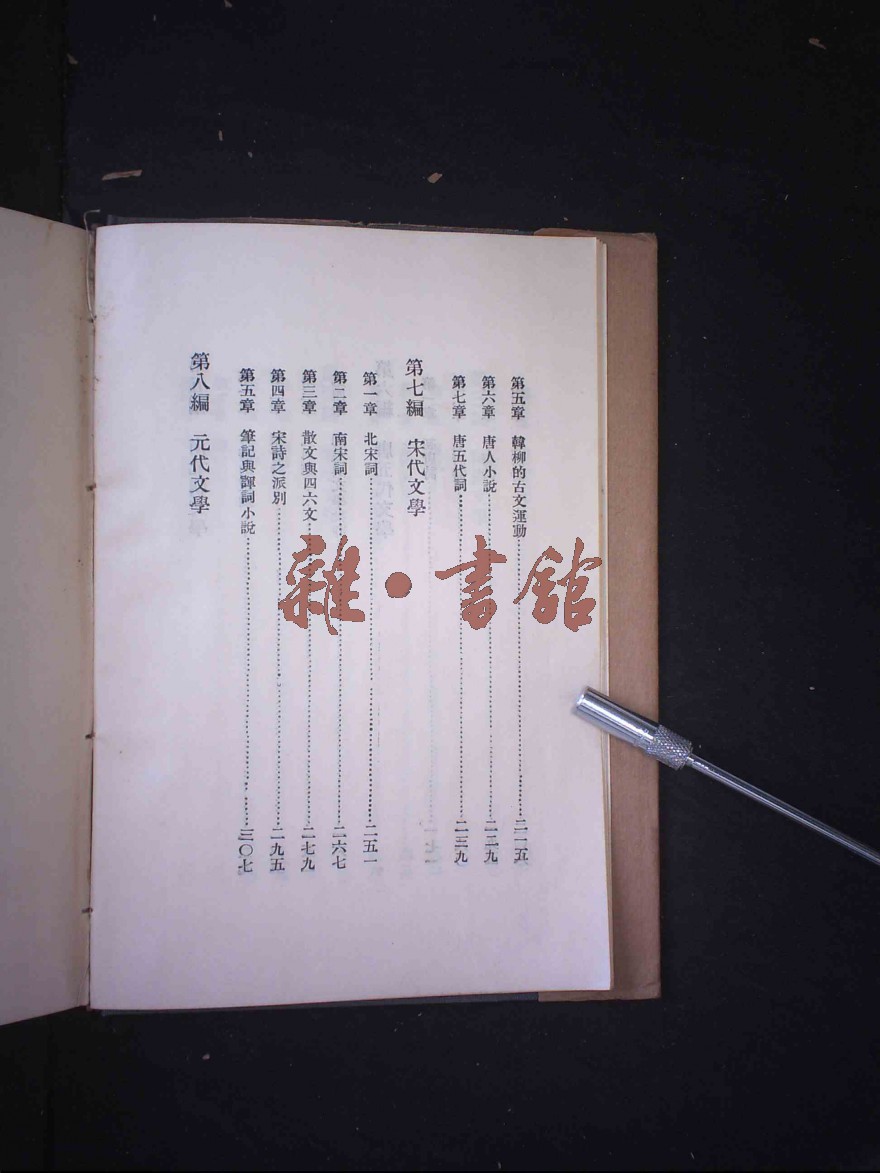 第五章 韓柳的古文運動 二一五
第六章 唐人小說 二二九
第七章 唐五代詞 二三九
第七編 宋代文學
第一章 北宋詞 二五一
第二章 南宋詞 二六七
第三章 散文與四六文 二七九
第四章 宋詩之派別 二九五
第五章 筆記與諢詞小說 三〇七
第八編 元代文學
雜·書館